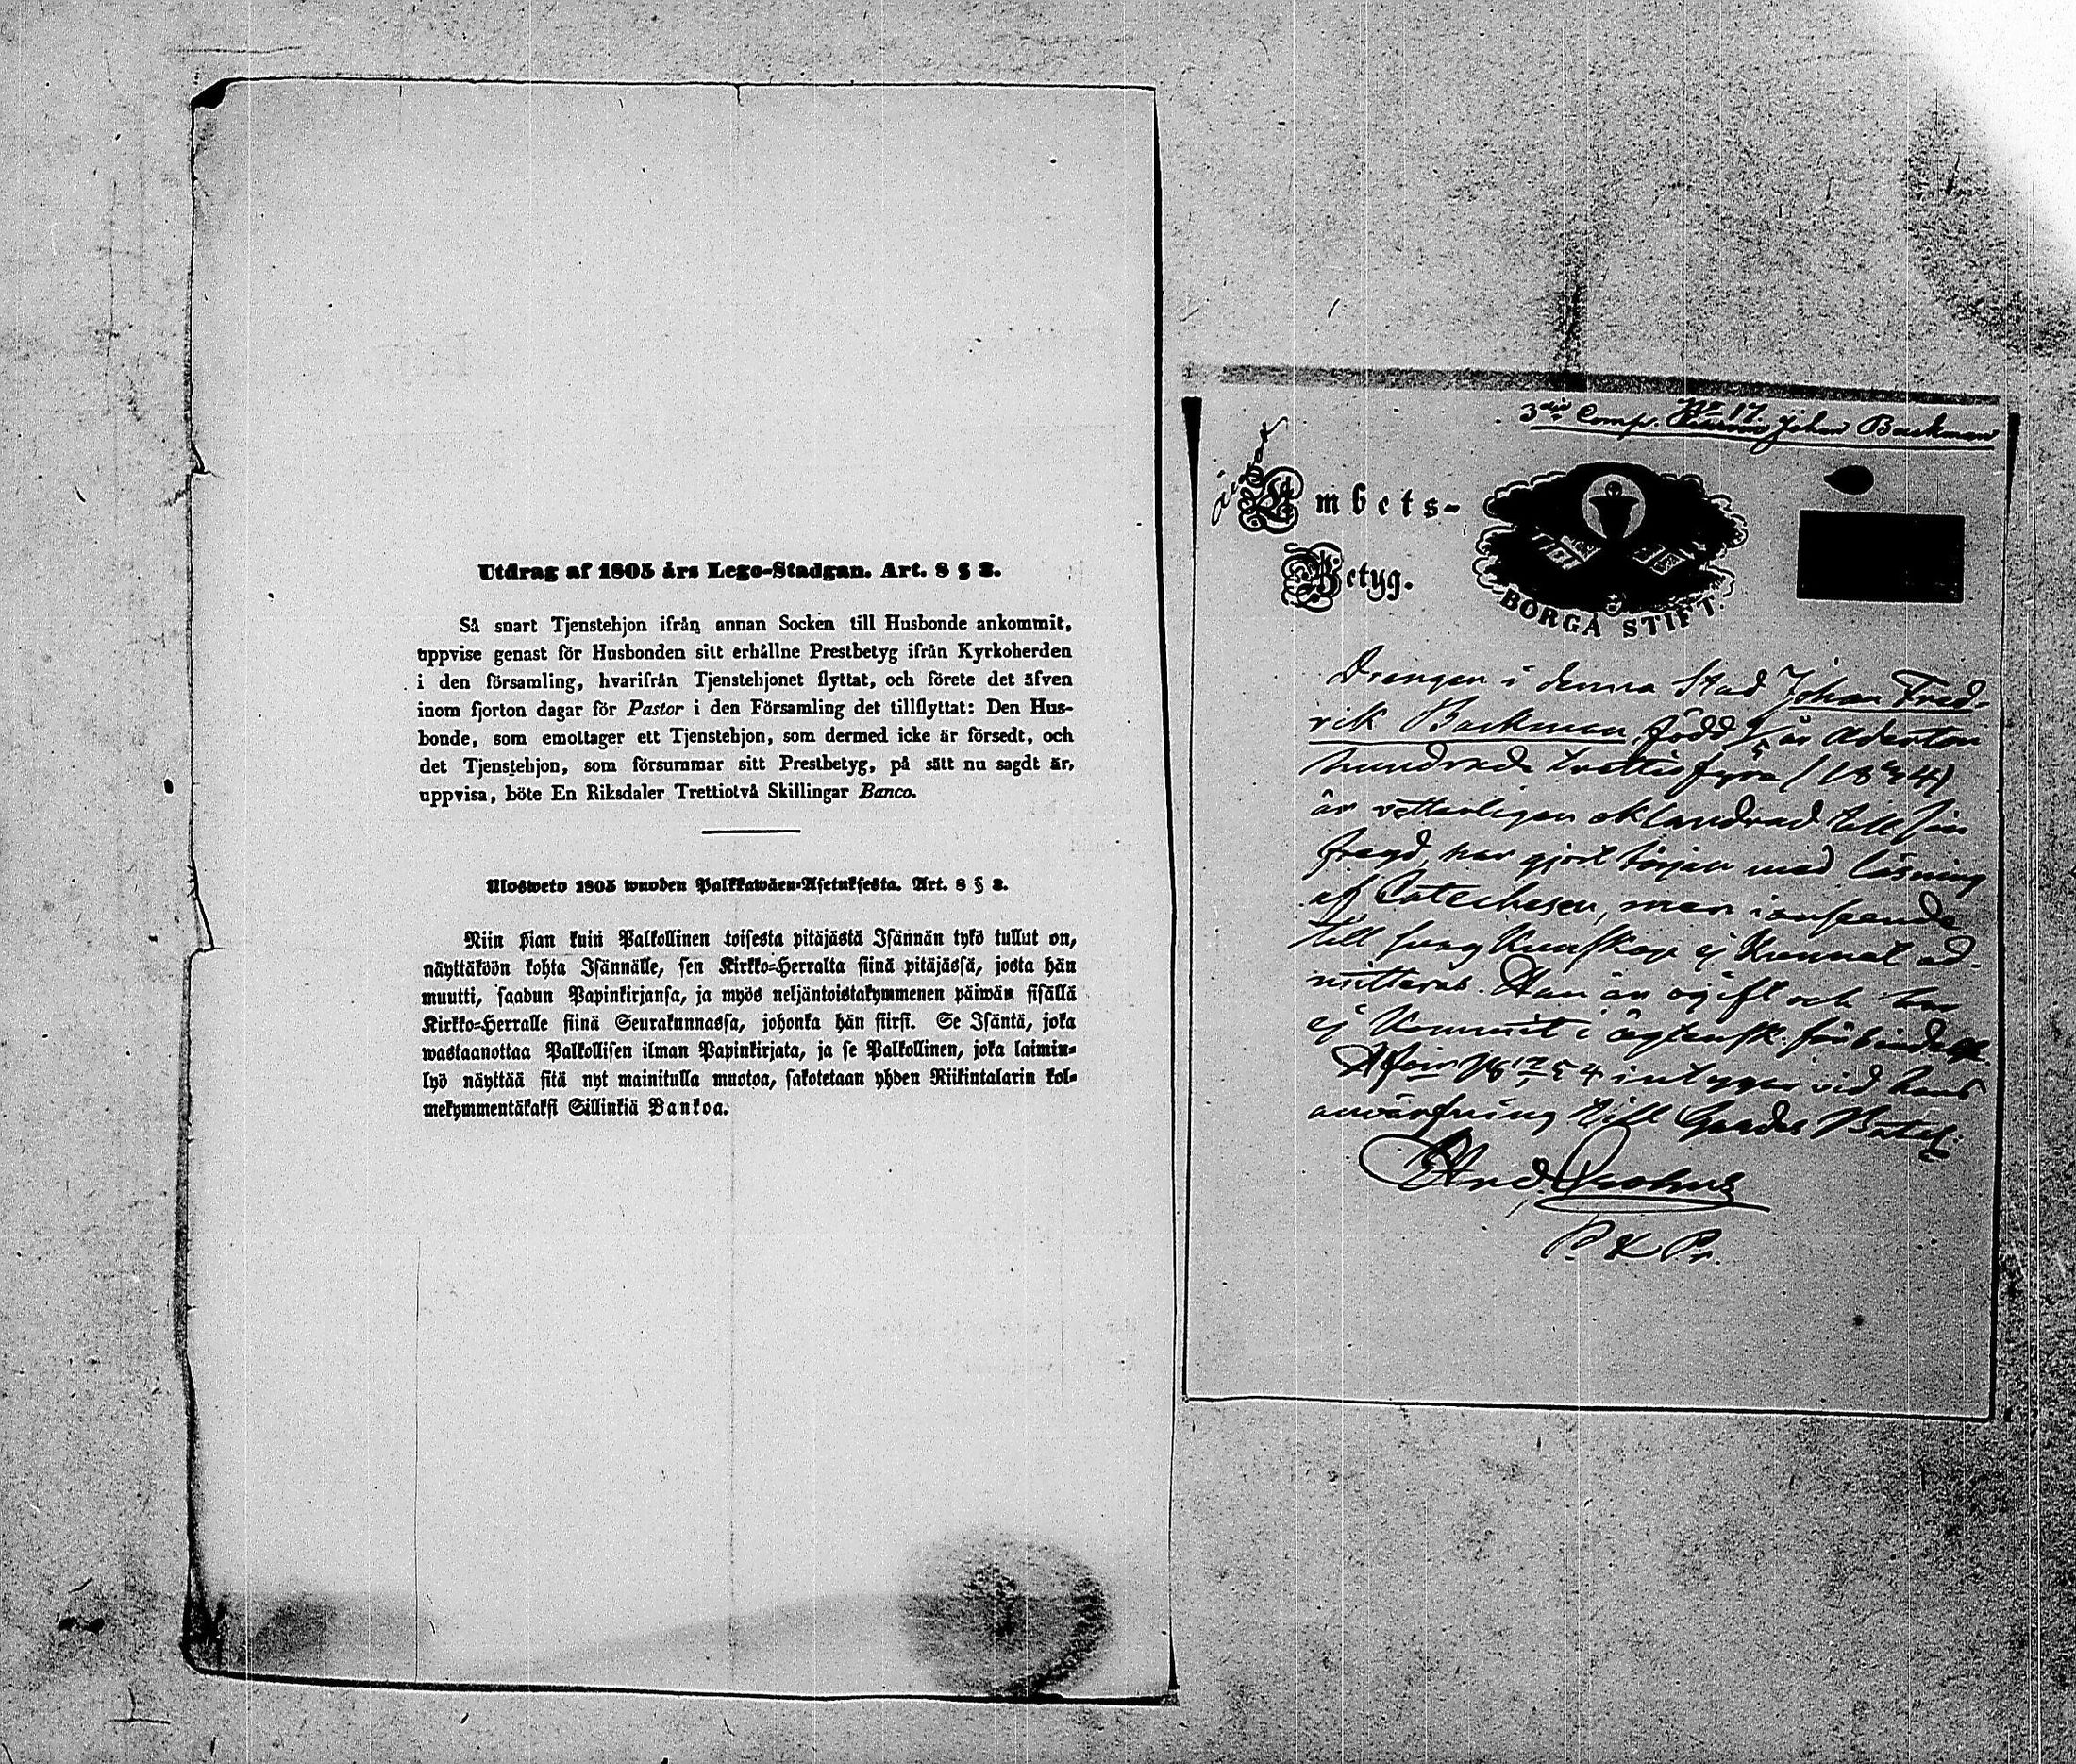 Utdrag af 1805 års Lego-Stadgan. Art. 8 § 2.
Så snart Tjenstehjon ifrån annan Socken till Husbonde ankommit,
uppvise genast för Husbonden sitt erhållne Prestbetyg ifrån Kyrkoherden
i den församling, hvarifrån Tjenstehjonet flyttat, och förete det äfven
inom fjorton dagar för Pastor i den Församling det tillflyttat: Den Hus-
bonde, som emottager ett Tjenstehjon, som dermed icke är försedt, och
det Tjenstehjon, som försummar sitt Prestbetyg, på sätt nu sagdt är,
uppvisa, böte En Riksdaler Trettiotvå Skillingar Banco.
Ulosweto 1805 wuoden Palkkawäen-Asetuksesta. Art. 8 § 2.
Niin pian kuin Palkollinen toisesta pitäjästä Isännän tykö tullut on,
näyttäköön kohta Isännälle, sen Kirkko-Herralta siinä pitäjässä, josta hän
muutti, saadun Papinkirjansa, ja myös neljäntoistakymmenen päiwän sisällä
Kirkko-Herralle siinä Seurakunnassa, johonka hän siirsi. Se Isäntä, joka
wastaanottaa Palkollisen ilman Papinkirjata, ja se Palkollinen, joka laimin-
lyö näyttää sitä nyt mainitulla muotoa, sakotetaan yhden Riikintalarin kol-
mekymmentäkaksi Sillinkiä Bankoa.
3die Comp. No 17. Johan Backman
Embets-
Betyg.
BORGÅ STIFT.
Drengen i denna Stad Johan Fred-
rik Backman, född år Aderton
hundrade trettiofyra (1834)
är vetterligen oklandrad till sin
fregd, har gjort början med läsning
af Catechesen, men i anseende
till swag Kunskap ej Kunnat ad-
mitteras. Han är ogift och har
ej Kommit i ägtensk. förbindelse.
54 intygar vid hans
anvärfning till Gardes Batal.
And.
P. K. Pr.